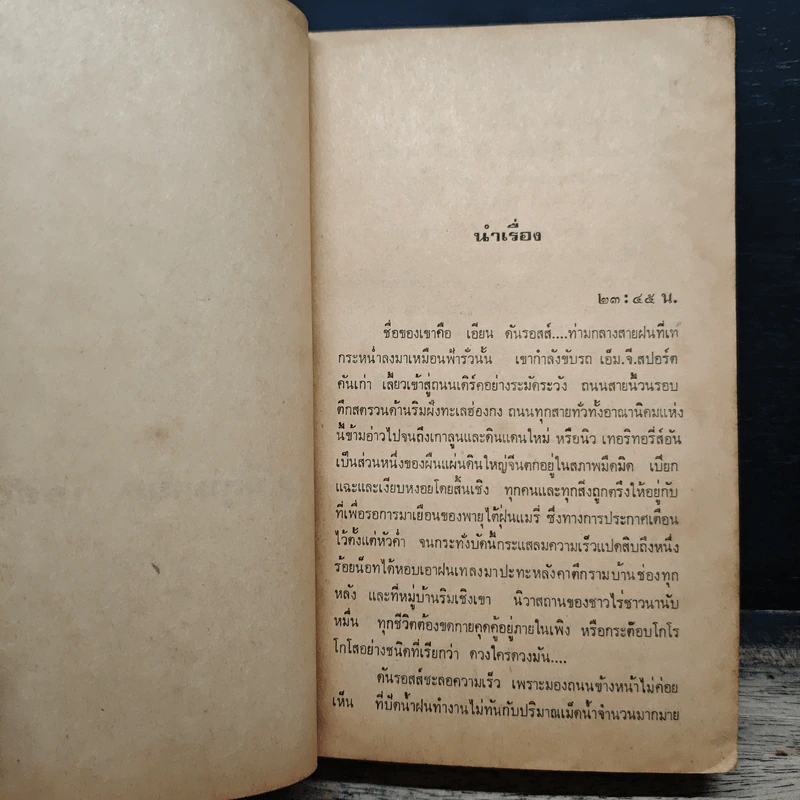 นำเรื่อง
๒๓ : ๔๕ น.
ชื่อของเขาคือ เอียน ดันรอสส์....ท่ามกลางสายฝนที่เท
กระหน่ำลงมาเหมือนฟ้ารั่วนั้น เขากำลังขับรถ เอ็ม.จี.สปอร์ต
คันเก่า เลี้ยวเข้าสู่ถนนเดิร์คอย่างระมัดระวัง ถนนสายนี้วนรอบ
ตึกสตรวนด้านริมฝั่งทะเลฮ่องกง ถนนทุกสายทั่วทั้งอาณานิคมแห่ง
นี้ข้ามอ่าวไปจนถึงเกาลูนและดินแดนใหม่ หรือนิว เทอริทอรี่ส์อัน
เป็นส่วนหนึ่งของผืนแผ่นดินใหญ่จีนตกอยู่ในสภาพมืดมิด เปียก
แฉะและเงียบหงอยโดยสิ้นเชิง ทุกคนและทุกสิ่งถูกตรึงให้อยู่กับ
ที่เพื่อรอการมาเยือนของพายุไต้ฝุ่นแมรี่ ซึ่งทางการประกาศเตือน
ไว้ตั้งแต่หัวค่ำ จนกระทั่งบัดนี้กระแสลมความเร็วแปดสิบถึงหนึ่ง
ร้อยน็อทได้หอบเอาฝนเทลงมาปะทะหลังคาตึกรามบ้านช่องทุก
หลัง และที่หมู่บ้านริมเชิงเขา นิวาสถานของชาวไร่ชาวนานับ
หมื่น ทุกชีวิตต้องขดกายคุดคู้อยู่ภายในเพิง หรือกระต๊อบโกโร
โกโสอย่างชนิดที่เรียกว่า ดวงใครดวงมัน....
ดันรอสส์ชะลอความเร็ว เพราะมองถนนข้างหน้าไม่ค่อย
เห็น ที่ปัดน้ำฝนทำงานไม่ทันกับปริมาณเม็ดน้ำจำนวนมากมาย